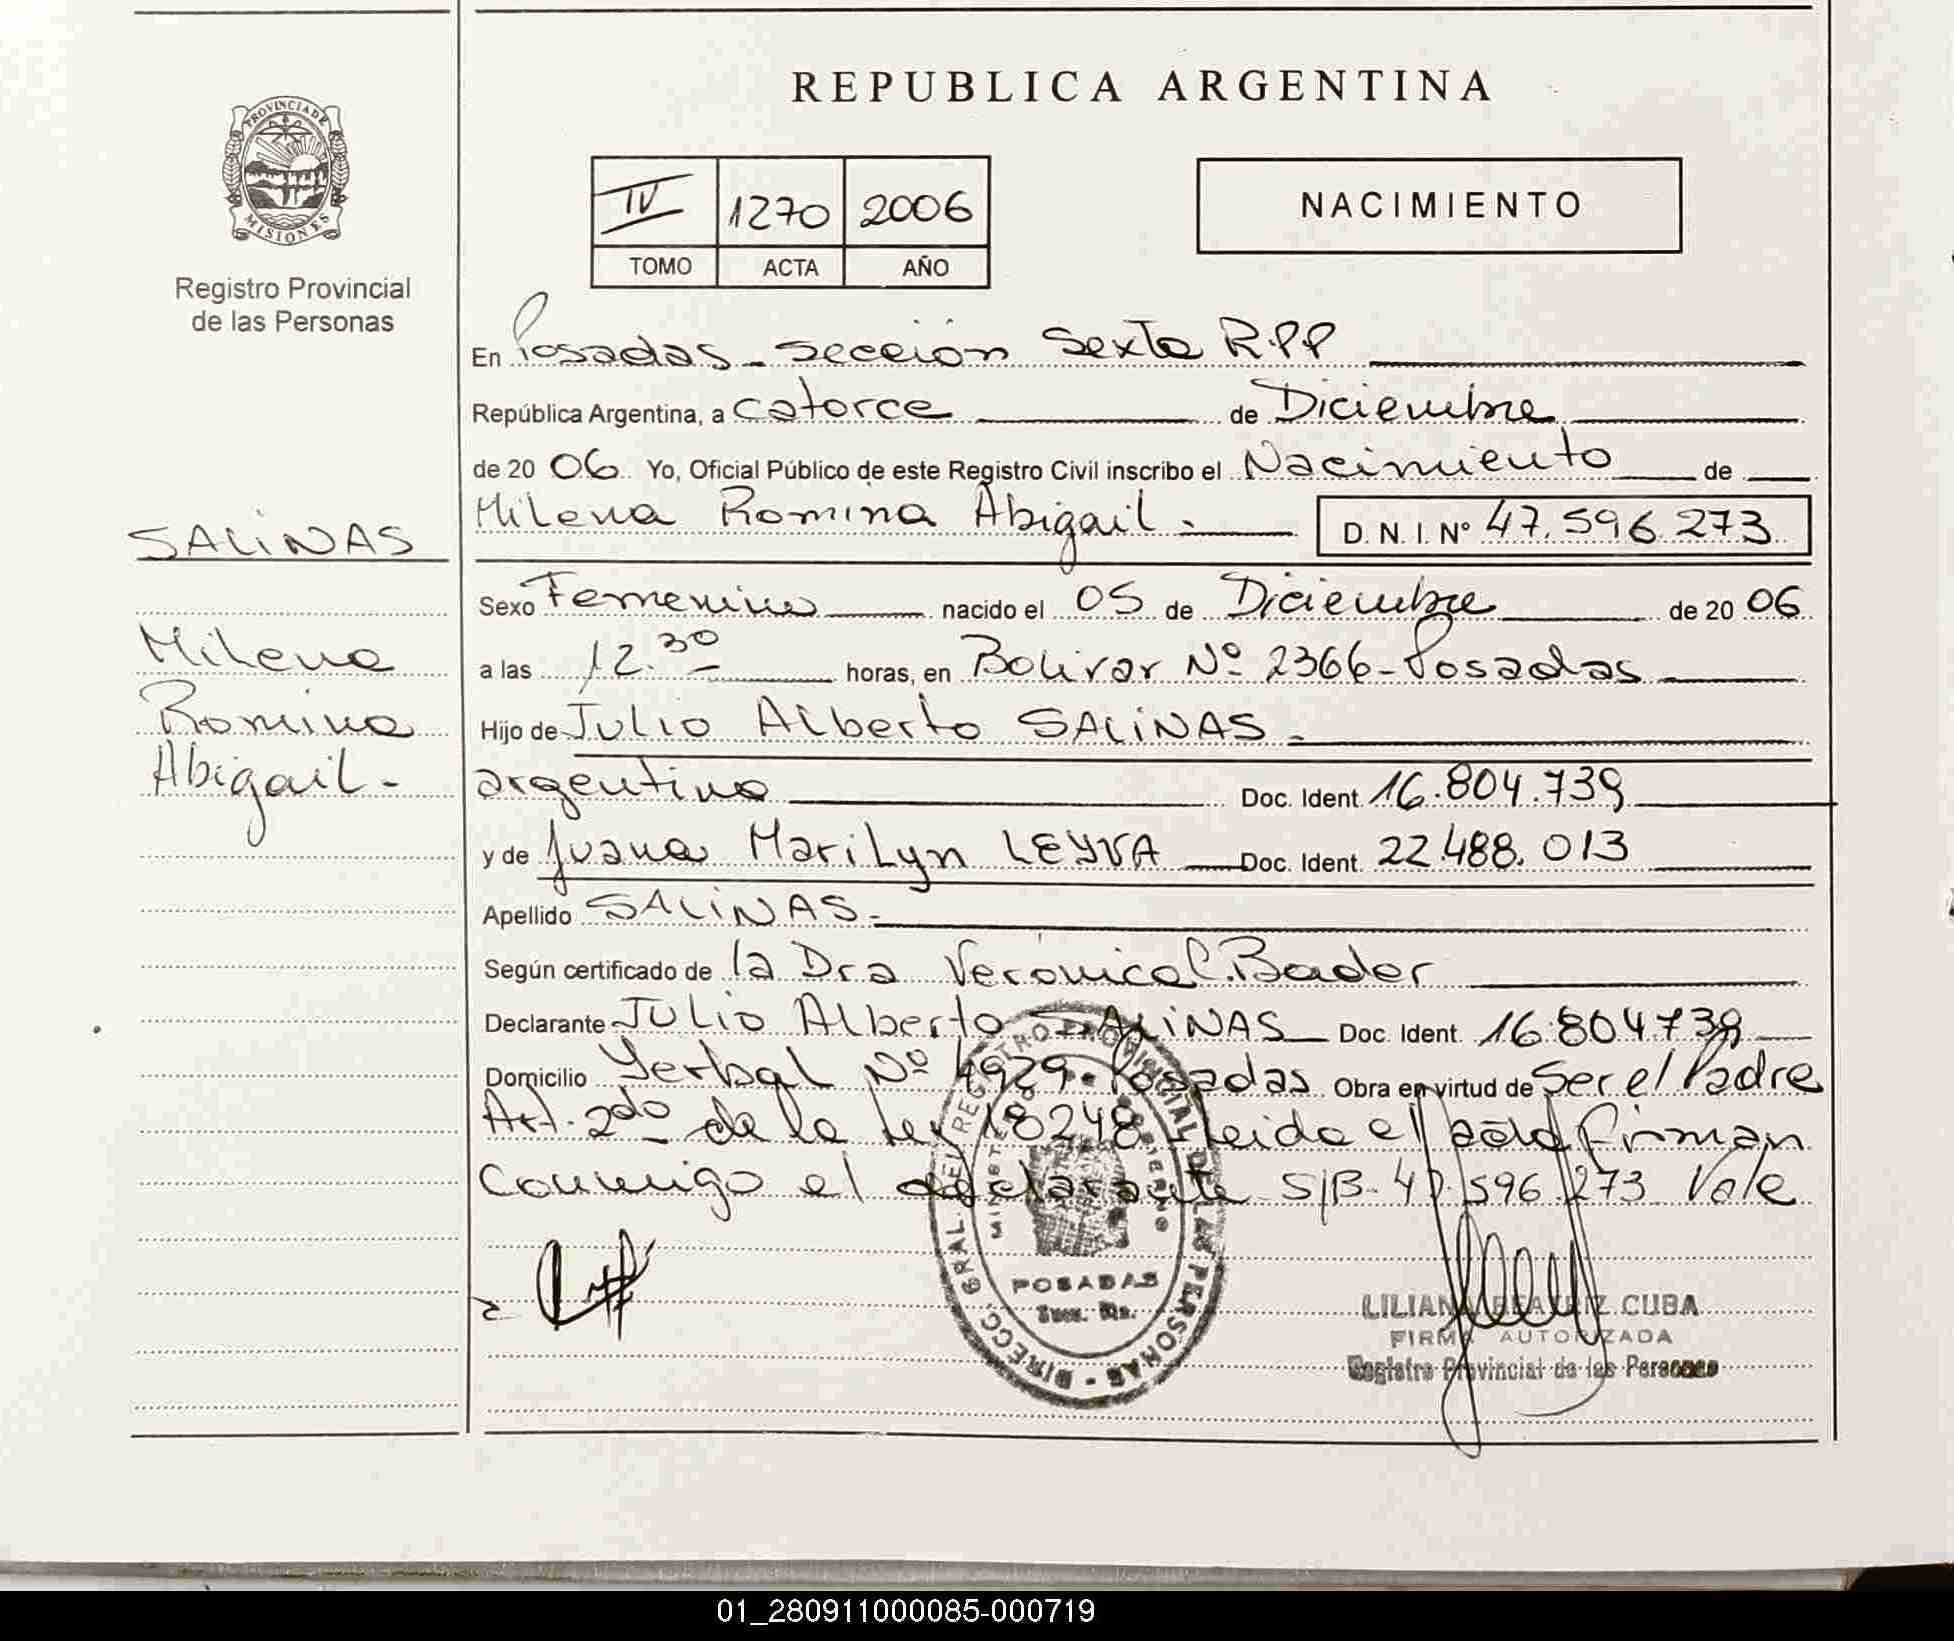 REPUBLICA ARGENTINA
PROVINCIA DE
MISIONES
Registro Provincial
de las Personas
IV 1270 2006
TOMO ACTA AÑO
NACIMIENTO
En Posadas - Sección Sexta R.P.P
República Argentina, a catorce de Diciembre
de 20 06 Yo, Oficial Público de este Registro Civil inscribo el Nacimiento de
Milena Romina Abigail.- D. N. I. Nº 47.596.273
SALINAS
Milena
Romina
Abigail -
Sexo Femenino nacido el 05 de Diciembre de 20 06
a las 12.30 horas, en Bolivar Nº 2366 - Posadas
Hijo de Julio Alberto SALINAS -
argentino Doc. Ident. 16.804.739
y de Juana Marilyn LEYVA Doc. Ident. 22.488.013
Apellido SALINAS -
Según certificado de la Dra Verónica C. Bader
Declarante Julio Alberto SALINAS Doc. Ident. 16.804.739
Domicilio Yerbal Nº 4929 - Posadas Obra en virtud de Ser el Padre
Art. 2do de la Ley 18248 leida el acta firman
conmigo el declarante S/B - 47.596.273 Vale
DIRECC. GRAL. DEL REGISTRO PROVINCIAL DE LAS PERSONAS -
POSADAS
LILIANA BEATRIZ CUBA
FIRMA AUTORIZADA
Registro Provincial de las Personas
01_280911000085-000719